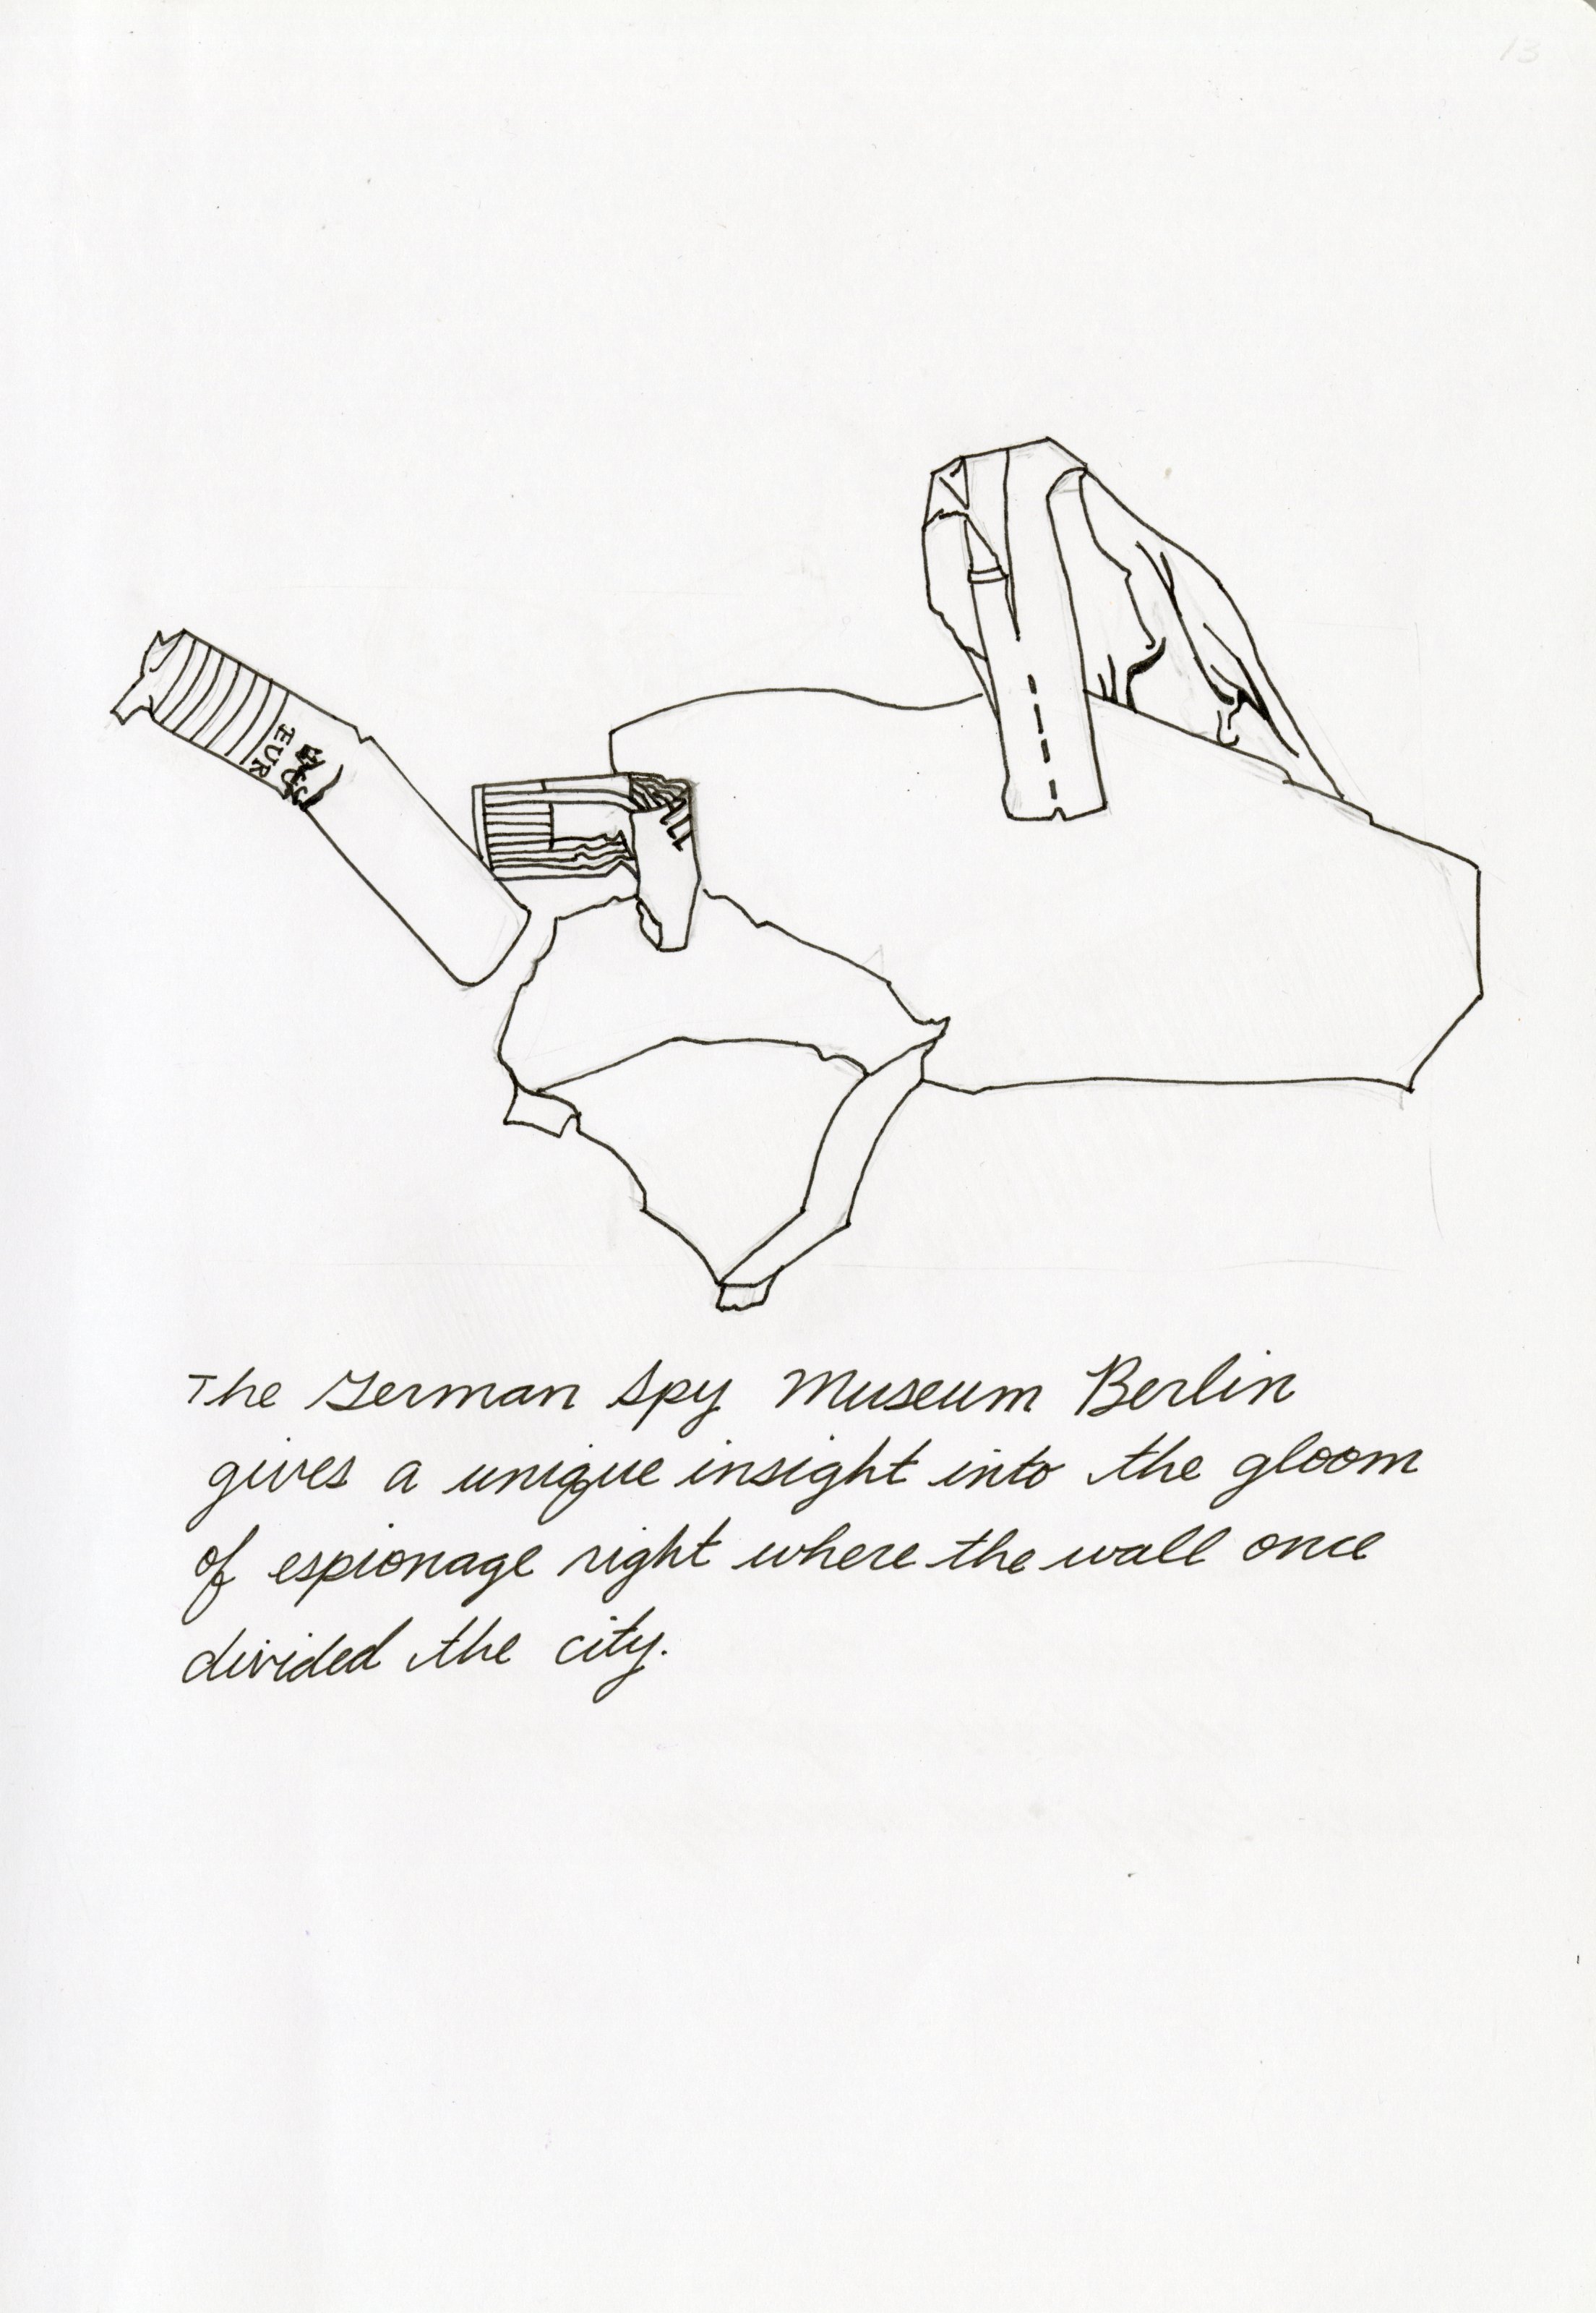 13
EUR
The German Spy Museum Berlin
gives a unique insight into the gloom
of espionage right where the wall once
divided the city.